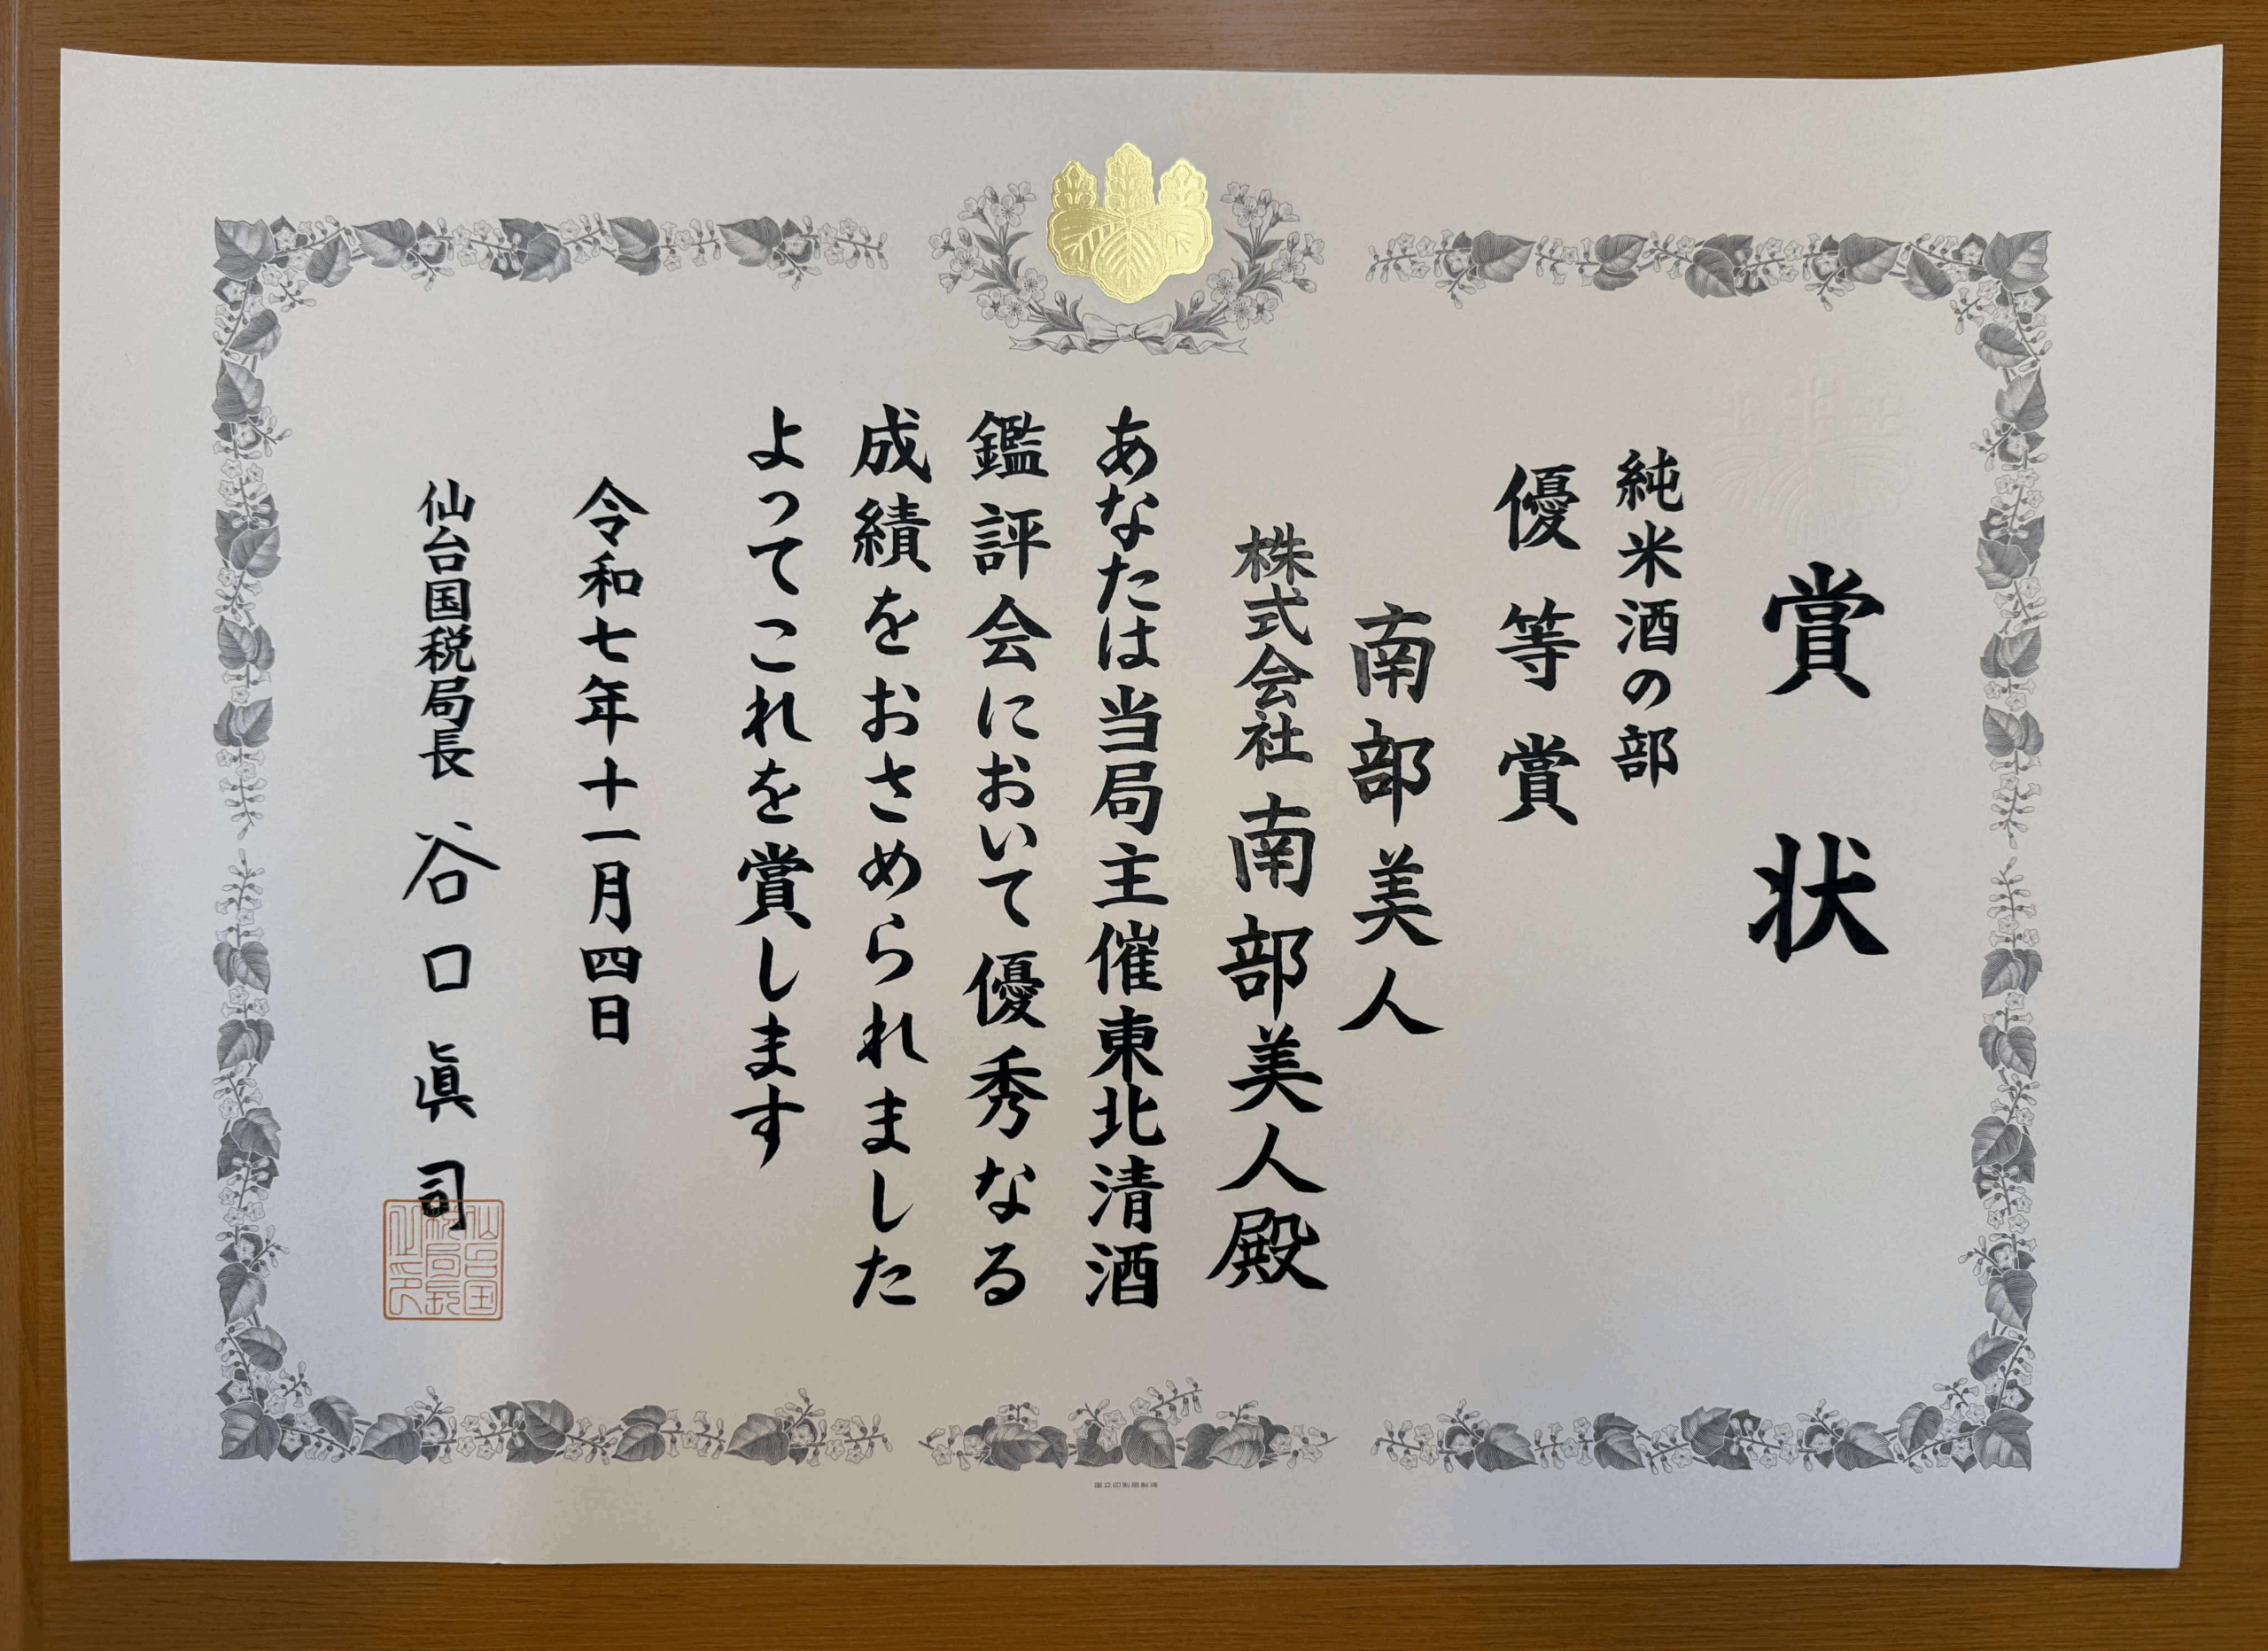 賞状
純米酒の部
優等賞
南部美人
株式会社南部美人殿
あなたは当局主催東北清酒
鑑評会において優秀なる
成績をおさめられました
よってこれを賞します
令和七年十一月四日
仙台国税局長 谷口眞司
仙台国
税局長
之印
国立印刷局製造